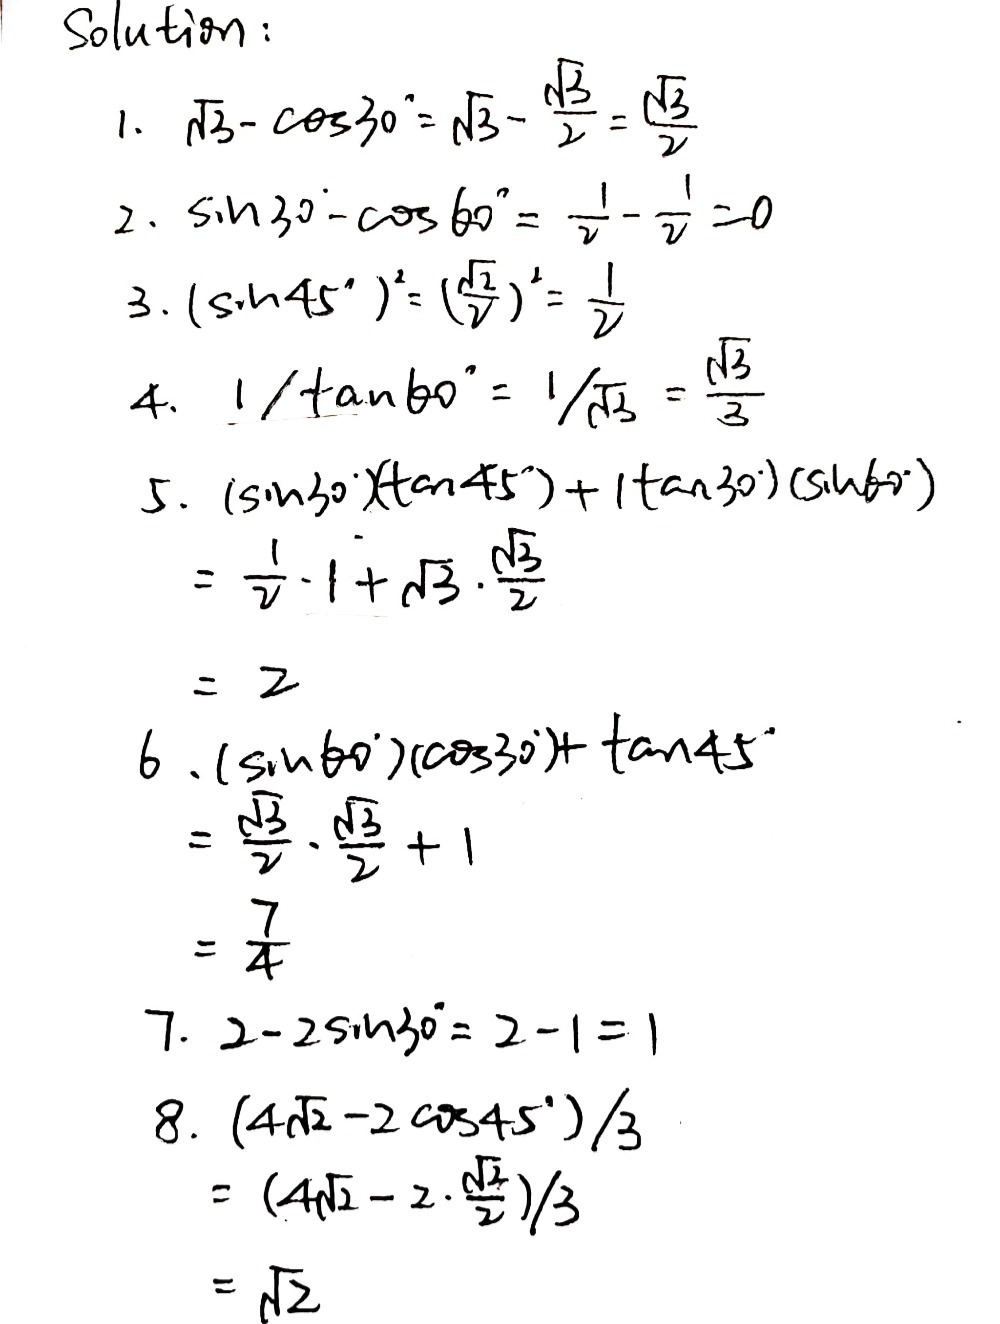 Solution:
1. √3 - cos30° = √3 - √3/2 = √3/2
2. sin30° - cos60° = 1/2 - 1/2 = 0
3. (sin45°)² = (√2/2)² = 1/2
4. 1/tan60° = 1/√3 = √3/3
5. (sin30°)(tan45°) + (tan30°)(sin60°)
= 1/2 · 1 + √3 · √3/2
= 2
6. (sin60°)(cos30°) + tan45°
= √3/2 · √3/2 + 1
= 7/4
7. 2 - 2sin30° = 2 - 1 = 1
8. (4√2 - 2cos45°)/3
= (4√2 - 2 · √2/2)/3
= √2